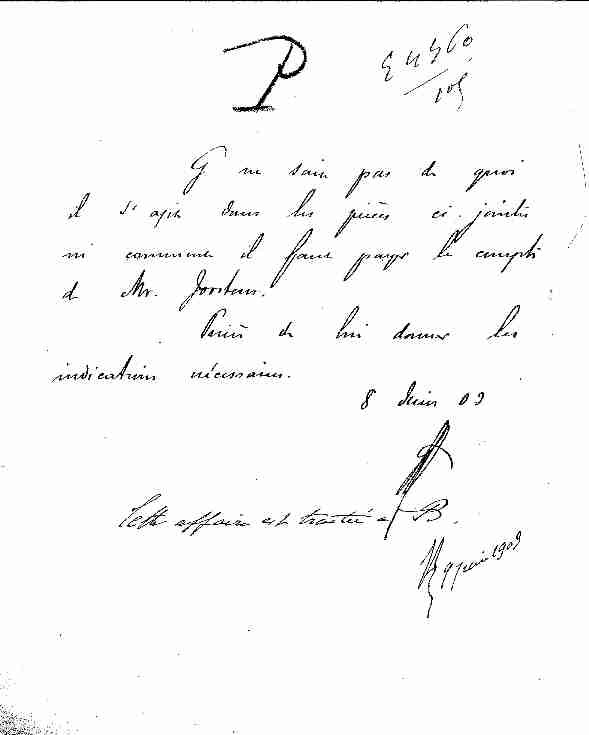 P
E 4360
/ 109
G ne sais pas de quoi
il s'agit dans les pièces ci-jointes
ni comment il faut payer le compte
de Mr.
Prière de lui donner les
indications nécessaires.
8 Juin 09
Cette affaire est traitée à B.
9 juin 1909